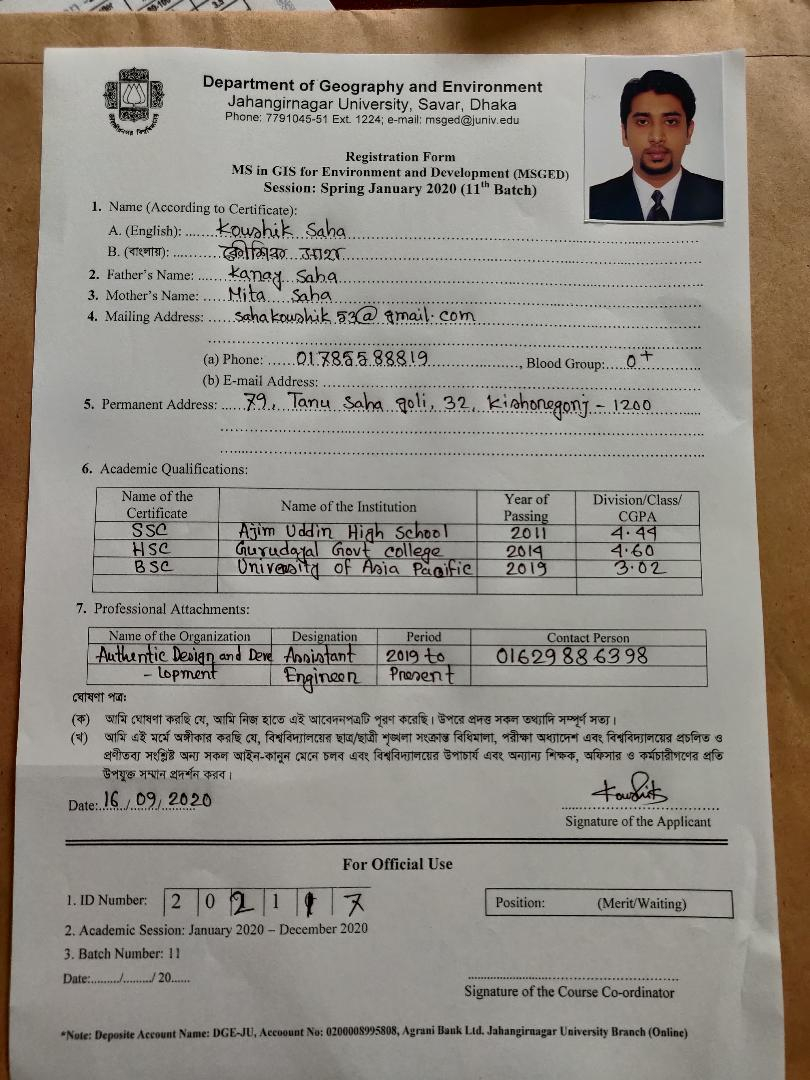 Department of Geography and Environment
Jahangirnagar University, Savar, Dhaka
Phone: 7791045-51 Ext. 1224; e-mail: msged@juniv.edu
Registration Form
MS in GIS for Environment and Development (MSGED)
Session: Spring January 2020 (11th Batch)
1. Name (According to Certificate):
A. (English): Koushik Saha
B. (বাংলায়): কৌশিক সাহা
2. Father's Name: Kanay Saha
3. Mother's Name: Mita Saha
4. Mailing Address: sahakoushik53@gmail.com
(a) Phone: 01785588819, Blood Group: O+
(b) E-mail Address:
5. Permanent Address: 79, Tanu Saha goli, 32, Kishoregonj - 1200
6. Academic Qualifications:
Name of the Certificate Name of the Institution Year of Passing Division/Class/CGPA
SSC Ajim Uddin High School 2011 4.44
HSC Gurudayal Govt college 2014 4.60
BSC University of Asia Pacific 2019 3.02
7. Professional Attachments:
Name of the Organization Designation Period Contact Person
Authentic Design and Deve Assistant 2019 to 01629886398
- lopment Engineer Present
ঘোষণা পত্র:
(ক) আমি ঘোষণা করছি যে, আমি নিজ হাতে এই আবেদনপত্রটি পূরণ করেছি। উপরে প্রদত্ত সকল তথ্যাদি সম্পূর্ণ সত্য।
(খ) আমি এই মর্মে অঙ্গীকার করছি যে, বিশ্ববিদ্যালয়ের ছাত্র/ছাত্রী শৃঙ্খলা সংক্রান্ত বিধিমালা, পরীক্ষা অধ্যাদেশ এবং বিশ্ববিদ্যালয়ের প্রচলিত ও
প্রণীতব্য সংশ্লিষ্ট অন্য সকল আইন-কানুন মেনে চলব এবং বিশ্ববিদ্যালয়ের উপাচার্য এবং অন্যান্য শিক্ষক, অফিসার ও কর্মচারীগণের প্রতি
উপযুক্ত সম্মান প্রদর্শন করব।
Date: 16/09/2020 Koushik
Signature of the Applicant
For Official Use
1. ID Number: 2 0 2 1 1 7 Position: (Merit/Waiting)
2. Academic Session: January 2020 – December 2020
3. Batch Number: 11
Date:......../......../ 20......
Signature of the Course Co-ordinator
*Note: Deposite Account Name: DGE-JU, Accoount No: 0200008995808, Agrani Bank Ltd. Jahangirnagar University Branch (Online)